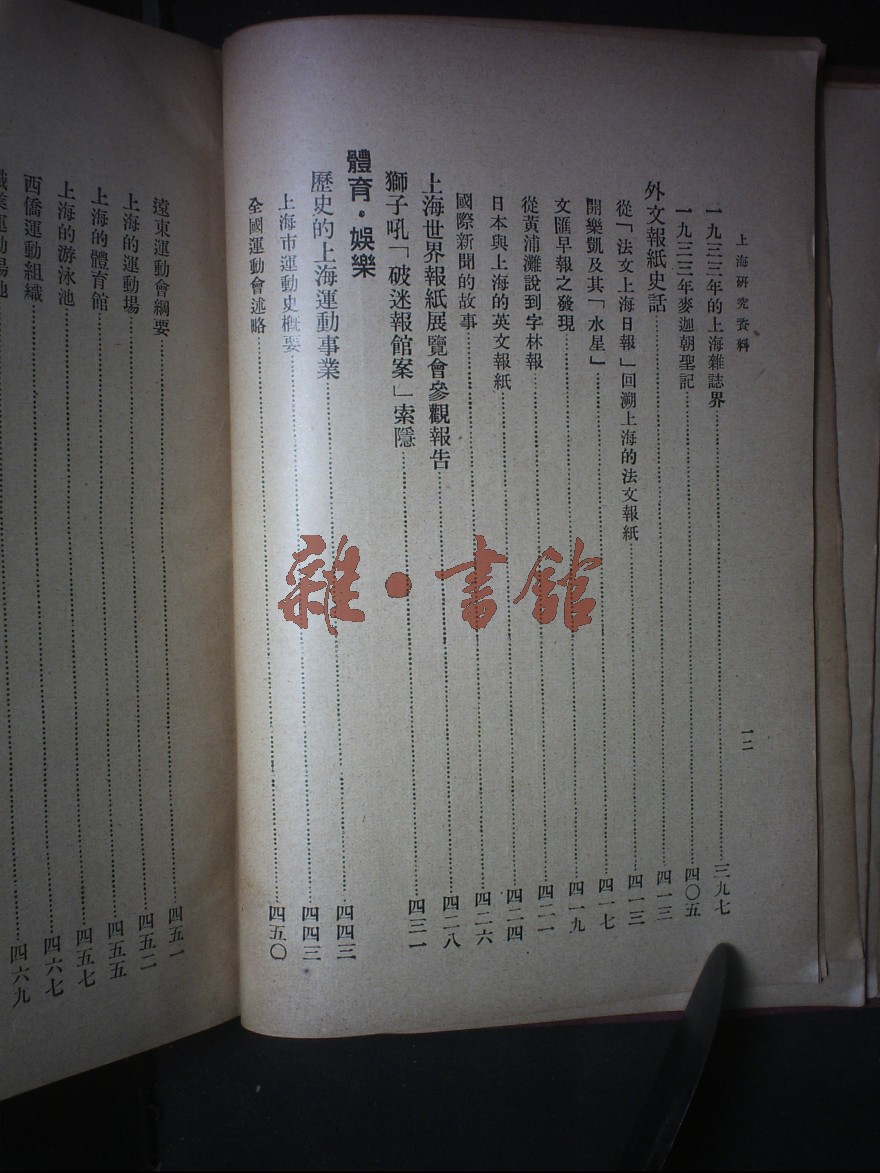 上海研究資料
一二
一九三三年的上海雜誌界……三九七
一九三三年麥迦朝聖記……四〇五
外文報紙史話……四一三
從「法文上海日報」回溯上海的法文報紙……四一三
開樂凱及其「水星」……四一七
文匯早報之發現……四一九
從黃浦灘說到字林報……四二一
日本與上海的英文報紙……四二四
國際新聞的故事……四二六
上海世界報紙展覽會參觀報告……四二八
獅子吼「破迷報館案」索隱……四三一
體育·娛樂
歷史的上海運動事業……四四三
上海市運動史概要……四四三
全國運動會述略……四五〇
遠東運動會綱要……四五一
上海的運動場……四五二
上海的體育館……四五五
上海的游泳池……四五七
西僑運動組織……四六七
業運動場地……四六九
雜·書館